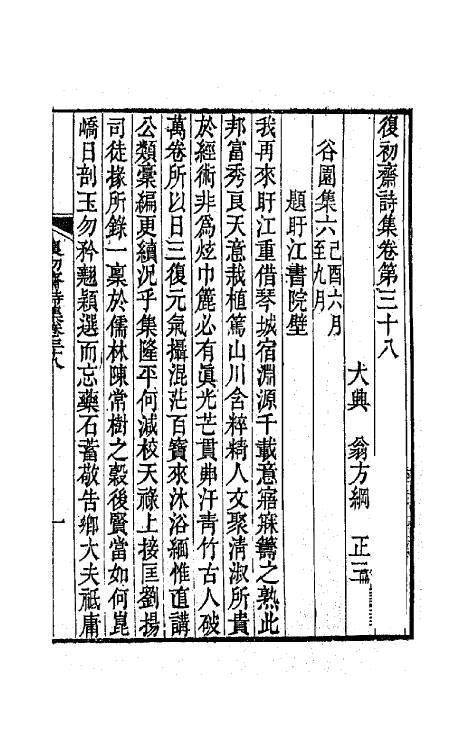 復初齋詩集卷第三十八
大興 翁方綱 正三
谷園集六 己酉六月至九月
題盱江書院壁
我再來盱江重借琴城宿淵源千載意寤寐籌之熟此
邦富秀良天意栽植篤山川含粹精人文聚清淑所貴
於經術非爲炫巾簏必有眞光芒貫弗汗青竹古人破
萬卷所以日三復元氣攝混茫百寶來沐浴緬惟直講
公類稾編更續況乎集隆平何減校天祿上接匡劉揚
司徒掾所錄一稟於儒林陳常樹之穀後賢當如何崑
嶠日剖玉勿矜翹穎選而忘藥石蓄敬告鄉大夫祗庸
復初齋詩集卷三十八
一